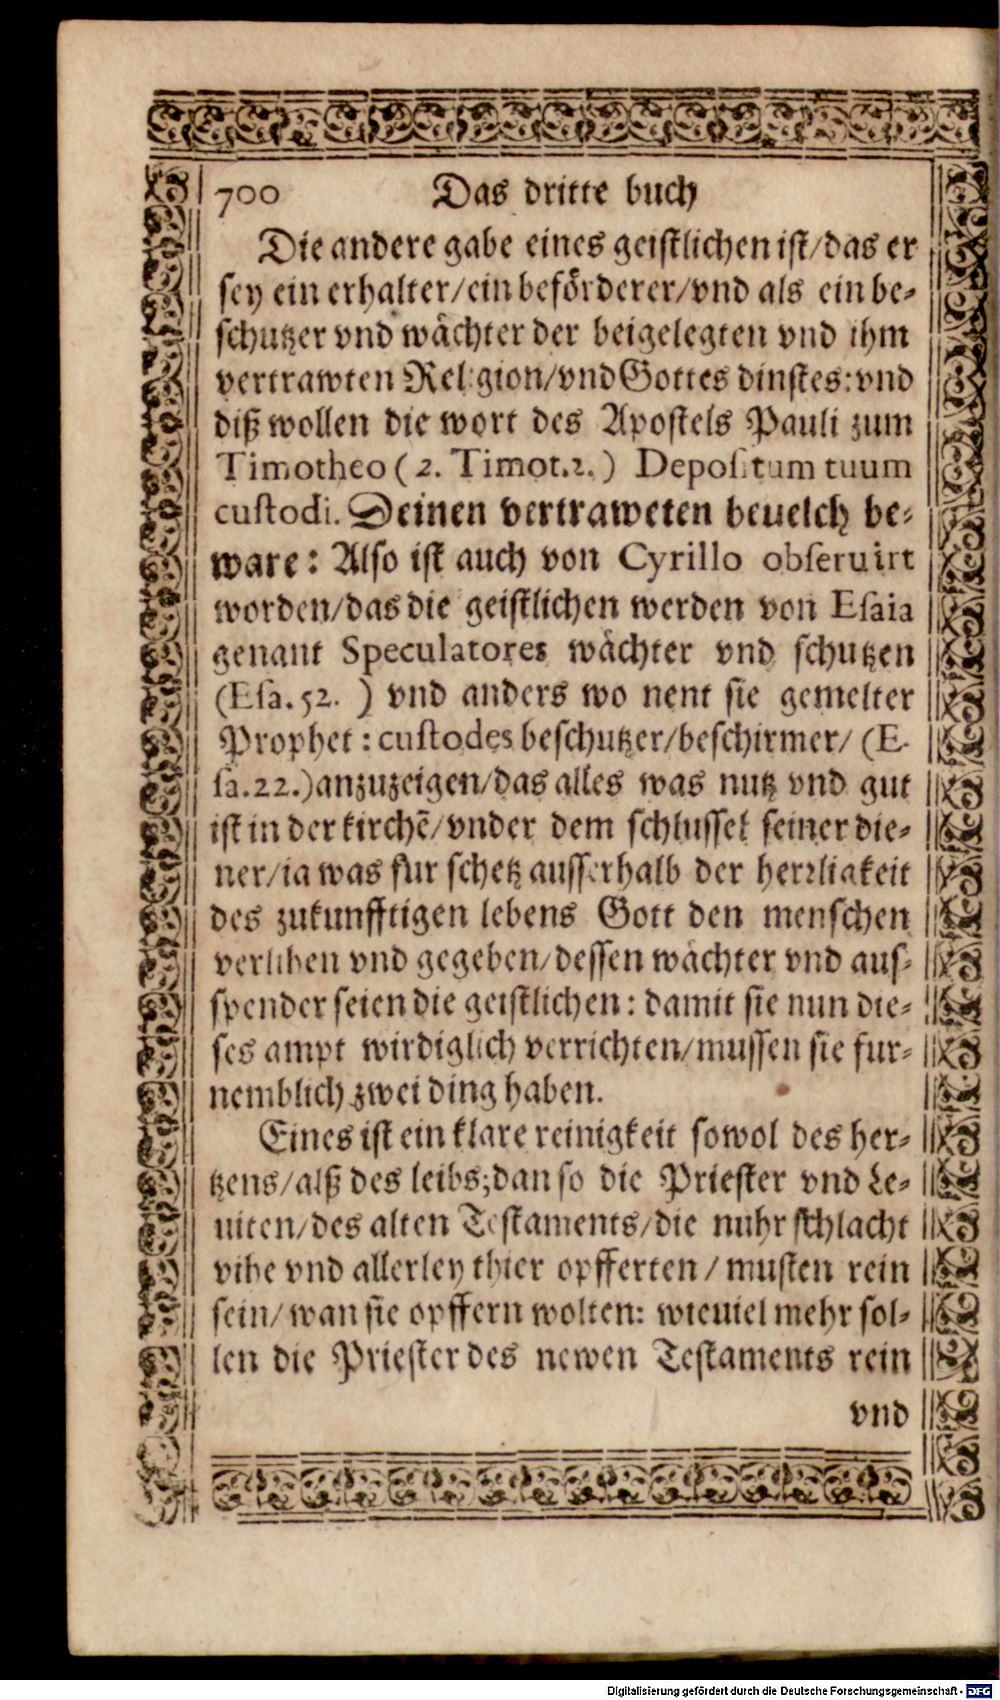 700 Das dritte buch
Die andere gabe eines geistlichen ist/das er
sey ein erhalter/ein beförderer/vnd als ein be-
schutzer vnd wächter der beigelegten vnd ihm
vertrawten Religion/vnd Gottes dinstes: vnd
diß wollen die wort des Apostels Pauli zum
Timotheo (2. Timot.2.) Depositum tuum
custodi. Deinen vertraweten beuelch be-
ware: Also ist auch von Cyrillo obseruirt
worden/das die geistlichen werden von Esaia
genant Speculatores wächter vnd schutzen
(Esa.52. ) vnd anders wo nent sie gemelter
Prophet: custodes beschutzer/beschirmer/ (E-
sa.22.)anzuzeigen/das alles was nutz vnd gut
ist in der kirchē/vnder dem schlussel seiner die-
ner/ia was fur schetz ausserhalb der herrliakeit
des zukunfftigen lebens Gott den menschen
verlihen vnd gegeben/dessen wächter vnd aus-
spender seien die geistlichen: damit sie nun die-
ses ampt wirdiglich verrichten/mussen sie fur-
nemblich zwei ding haben.
Eines ist ein klare reinigkeit sowol des her-
tzens/alß des leibs;dan so die Priester vnd Le-
uiten/des alten Testaments/die nuhr schlacht
vihe vnd allerley thier opfferten/ musten rein
sein/ wan sie opffern wolten: wieuiel mehr sol-
len die Priester des newen Testaments rein
vnd
Digitalisierung gefördert durch die Deutsche Forschungsgemeinschaft - DFG